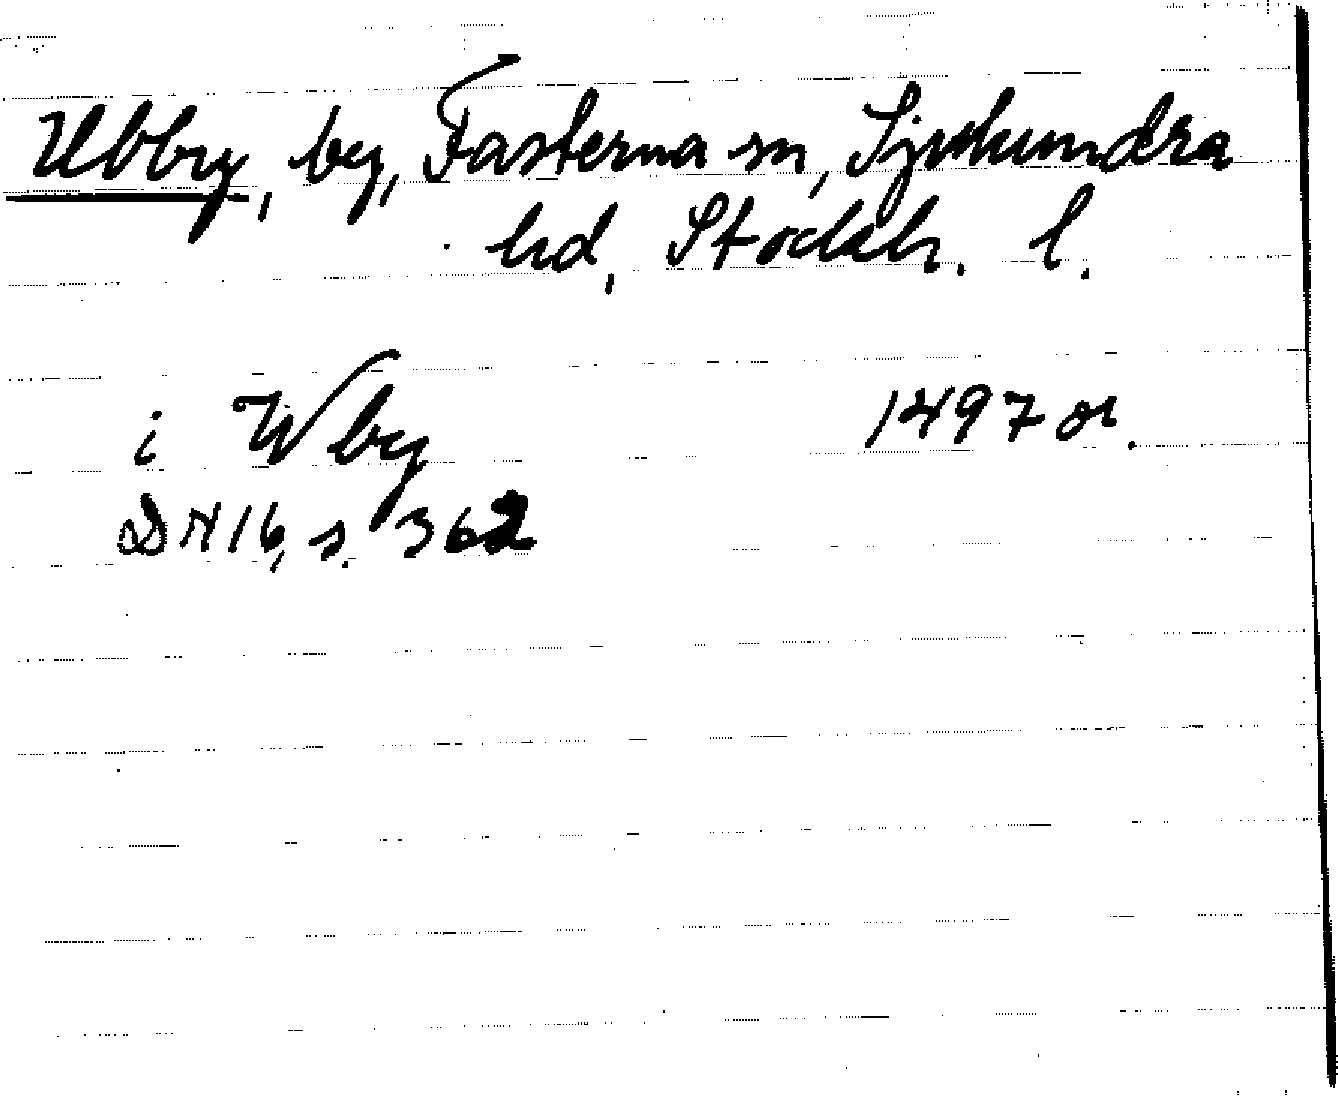 Ubby, by, Fasterna sn, Sjuhundra
hd, Stockh. l.
i Wby 1497 or.
DN 16, s. 362